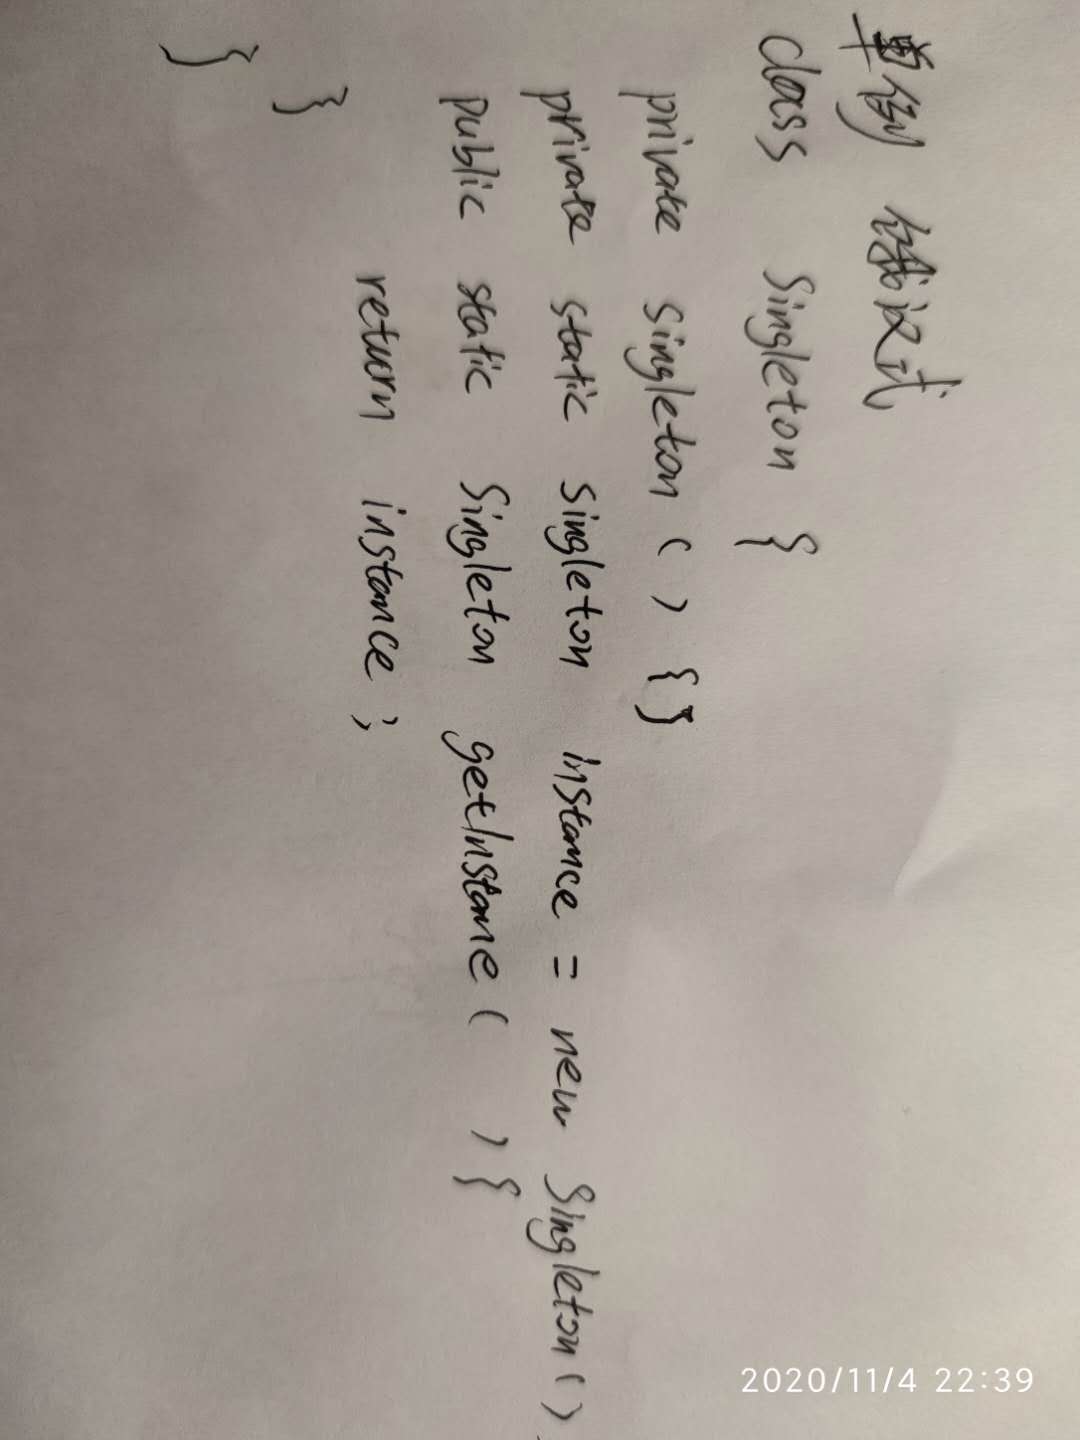 单例 饿汉式
class Singleton {
private Singleton() {}
private static Singleton instance = new Singleton()
public static Singleton getInstane( ) {
return instance;
}
}
2020/11/4 22:39